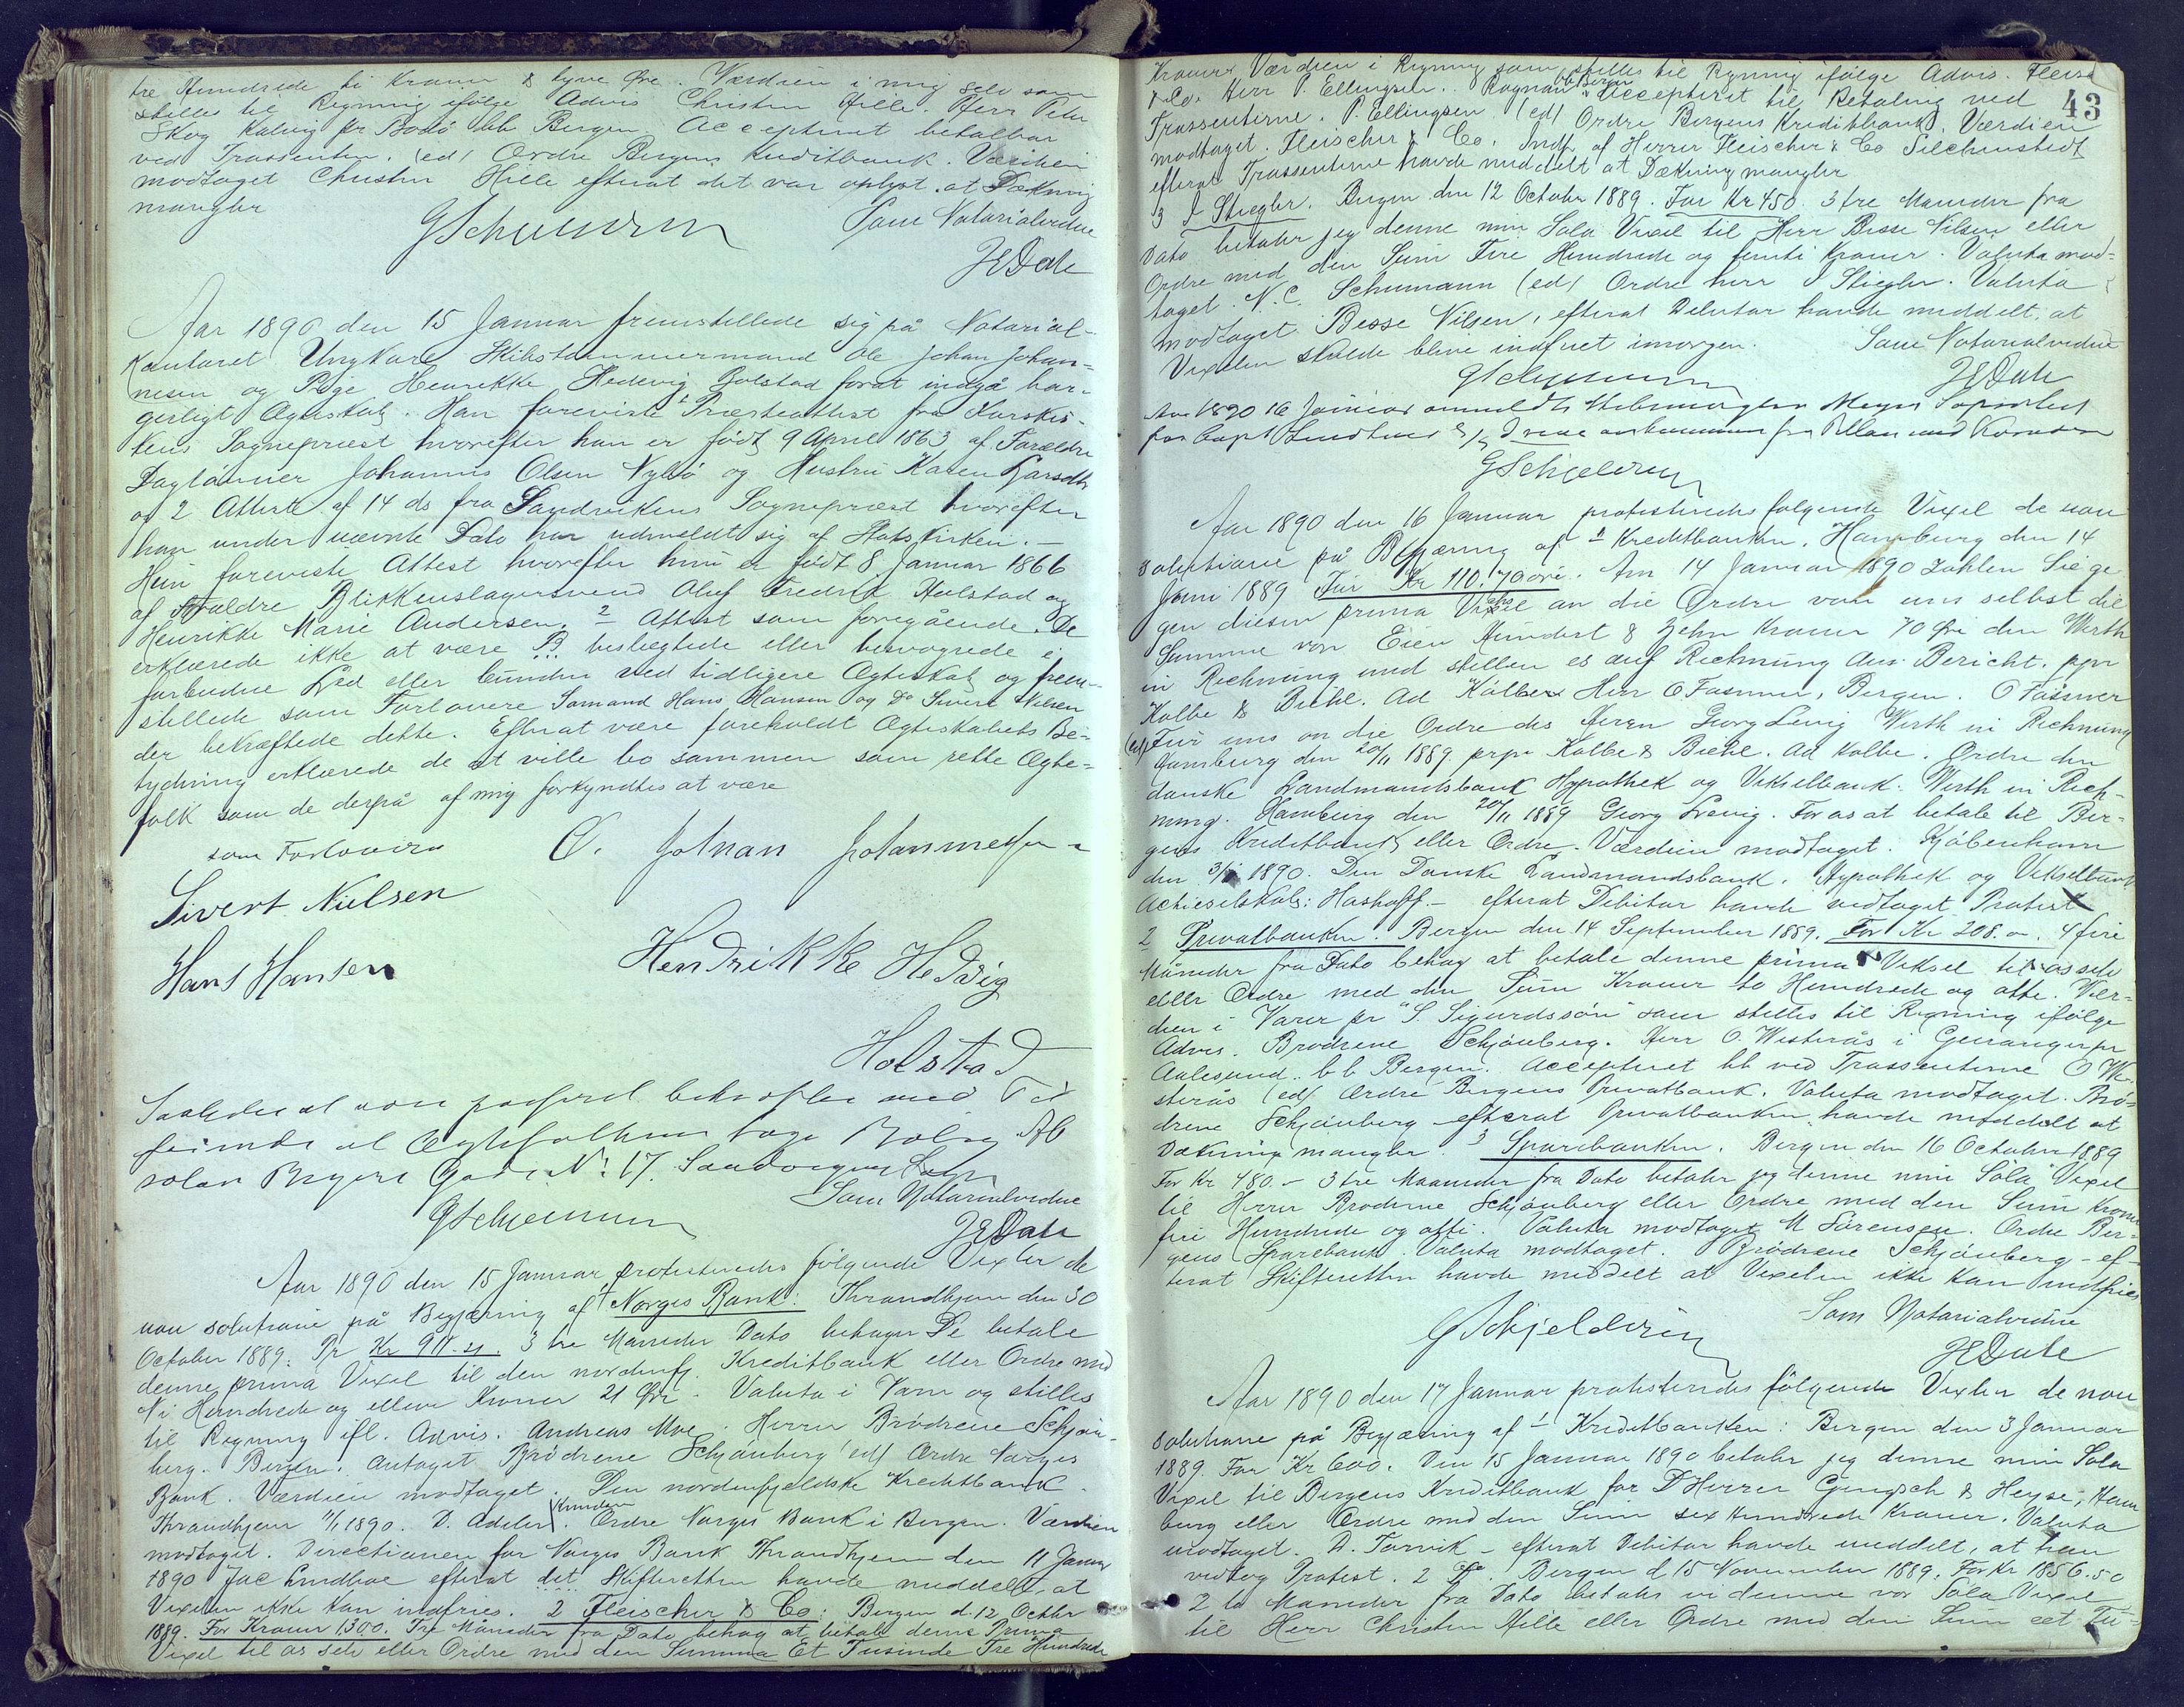 tre Hundrede ti Kroner & tyve Øre. Værdien i mig selv som
stilles til Regning ifølge Advis Christen Hille. Herr Peter
Skog Kalvig pr Bodö bb Bergen. Accepteret betalbar
ved Trassenten. (ed) Ordre Bergens Kreditbank. Værdien
modtaget Christen Hille efterat det var oplyst at Dækning
mangler
Som Notarialvidne
JEDale
Aar 1890 den 15 Januar fremstillede sig på Notarial-
kontoret Ungkarl Skibstømmermand Ole Johan Johan-
nesen og Pige Henrikke Hedevig Holstad forat indgå bor-
gerligt Ægteskab. Han foreviste 1 Præsteattest fra Korskir-
kens Sognepræst hvorefter han er født 9 April 1863 af Forældre
Daglønner Johannes Olsen Nybö og Hustru Karen Larsdtr
og 2 Attest af 14 ds fra Sandvikens Sognepræst hvorefter
han under nævnte Dato har udmeldt sig af Statskirken. -
Hun foreviste Attest hvorefter hun er født 8 Januar 1866
af Forældre Blikkenslagersvend Oluf Fredrik Holstad og
Henrikke Marie Andersen. 2 Attest som foregående. De
erklærede ikke at være B beslægtede eller besvogrede i
forbudne Led eller bunden ved tidligere Ægteskab og frem-
stillede som Forlovere Sømand Hans Hansen og Do Sivert Nielsen
der bekræftede dette. Efterat være foreholdt Ægteskabets Be-
tydning erklærede de at ville bo sammen som rette Ægte-
folk som de derpå af mig forkyndtes at være
som Forlovere O. Johnan Johannessen
Sivert Nielsen
Hans Hansen Hendrikke Hedvig
Holstad
Saaledes at være passeret bekræftes med
at Ægtefolkene Bolig
Gade No 17. Sandvigen
Som Notarialvidne
JEDale
Aar 1890 den 15 Januar protesteredes følgende Vexler de
non solutione på Begjæring af 1 Norges Bank: Throndhjem den 30
October 1889. Pr Kr 911.21. 3 tre Maaneder Dato behager De betale
denne prima Vexel til den nordenfj. Kreditbank eller Ordre med
Ni Hundrede og elleve Kroner 21 Øre - Valuta i Varer og stilles
til Regning ifl. Advis. Andreas Moe. Herrer Brødrene Schjön-
berg. Bergen. Antaget Brødrene Schjönberg (ed) Ordre Norges
Bank. Værdien modtaget. Den nordenfjeldske Kreditbank.
Throndhjem 11/1 1890. D. Adeler. Ordre Norges Bank i Bergen. Værdien
modtaget. Directionen for Norges Bank Throndhjem den 11 Januar
1890 Jac Lindboe efterat det Skifteretten havde meddelt, at
Vexelen ikke kan indfries. 2 Fleischer & Co: Bergen d. 12 Octbr
1889. For Kroner 1300. Tre Maaneder fra Dato behag at betale denne Prima
Vexel til os selv eller Ordre med den Summa Et Tusinde Tre Hundrede
43
Kroner Værdien i Regning som stilles til Regning ifølge Advis. Fleischer
& Co. Herr P. Ellingsen. Rognan bb Bergen. Accepteret til Betaling ved
Trassenterne. P. Ellingsen (ed) Ordre Bergens Kreditbank. Værdien
modtaget. Fleischer & Co. Indf. af Herrer Fleischer & Co
efterat Trassenterne havde meddelt at Dækning mangler
3 J Stiegler. Bergen den 12 October 1889. For Kr 450. 3 tre Maaneder fra
Dato betaler jeg denne min Sola Vexel til Herr Besse Nilsen eller
Ordre med den Sum Fire Hundrede og femti Kroner. Valuta mod-
taget. N. C. Schumann (ed) Ordre herr J Stiegler. Valuta
modtaget. Besse Nilsen, efterat Debitor havde meddelt, at
Vexelen skulde blive indfriet imorgen. Som Notarialvidne
JEDale
Aar 1890 16 Januar anmeldte Skibsmægler Meyer Søprotest
for Capt ankommen fra med
Aar 1890 den 16 Januar protesteredes følgende Vexel de non
solutione på Begjæring af 1 Kreditbanken. Hamburg den 14
Juni 1889 Für Kr 110.70 öre. Am 14 Januar 1890 zahlen Sie ge-
gen diesen prima Wechsel an die Ordre von uns selbst die
Summe von Ein Hundert & Zehn Kroner 70 Øre den Werth
in Rechnung und stellen es auf Rechnung aus Bericht. ppr
Kolbe & Biehl. Ad Kolbe. Herr O Fasmer, Bergen. O Fasmer
(ed) Für uns an die Ordre des Herrn Georg Levig Werth in Rechnung
Hamburg den 20/11 1889 prp Kolbe & Biehl. Ad Kolbe. Ordre den
danske Landmandsbank Hypothek og Vekselbank. Werth in Rech-
nung. Hamburg den 20/11 1889 Georg Levig. For os at betale til Ber-
gens Kreditbank eller Ordre. Værdien modtaget. Kjøbenhavn
den 3/1 1890. Den Danske Landmandsbank. Hypothek og Vekselbank
Actieselskab: - efterat Debitor havde vedtaget Protest
2 Privatbanken. Bergen den 14 September 1889. For Kr 208.00. 4 fire
Måneder fra Dato behag at betale denne prima Veksel til os selv
eller Ordre med den Sum Kroner to Hundrede og otte. Vær-
dien i Varer pr "S. Sigurdssön" som stilles til Regning ifølge
Advis. Brødrene Schjönberg. Herr O. Westerås i Geiranger pr
Aalesund. bb Bergen. Accepteret bb ved Trassenterne O We-
sterås (ed) Ordre Bergens Privatbank. Valuta modtaget. Brö-
drene Schjönberg - efterat Privatbanken havde meddelt at
Dækning mangler. 3 Sparebanken. Bergen den 16 October 1889
For Kr 480.- 3 tre Maaneder fra Dato betaler jeg denne min Sola Vexel
til Herrer Brødrene Schjönberg eller Ordre med den Sum Kroner
fire Hundrede og otti. Valuta modtaget M Sörensen. Ordre Ber-
gens Sparebank. Valuta modtaget. Brödrene Schjönberg - ef-
terat Skifteretten havde meddelt at Vexelen ikke kan indfries
Som Notarialvidne
JEDale
Aar 1890 den 17 Januar protesteredes følgende Vexler de non
solutione på Begjæring af 1 Kreditbanken: Bergen den 3 Januar
1889. For Kr 600. Den 15 Januar 1890 betaler jeg denne min Sola
Vexel til Bergens Kreditbank for D'Herrer Gengsch & Heyse, Ham
burg eller Ordre med den Sum sex Hundrede Kroner. Valuta
modtaget. D. Torvik - efterat Debitor havde meddelt, at han
vedtog Protest. 2 Do. Bergen d. 15 November 1889. For Kr 1856.50
2 to Maaneder fra Dato betaler vi denne vor Sola Vexel
til Herr Christen Hille eller Ordre med den Sum eet Tu-